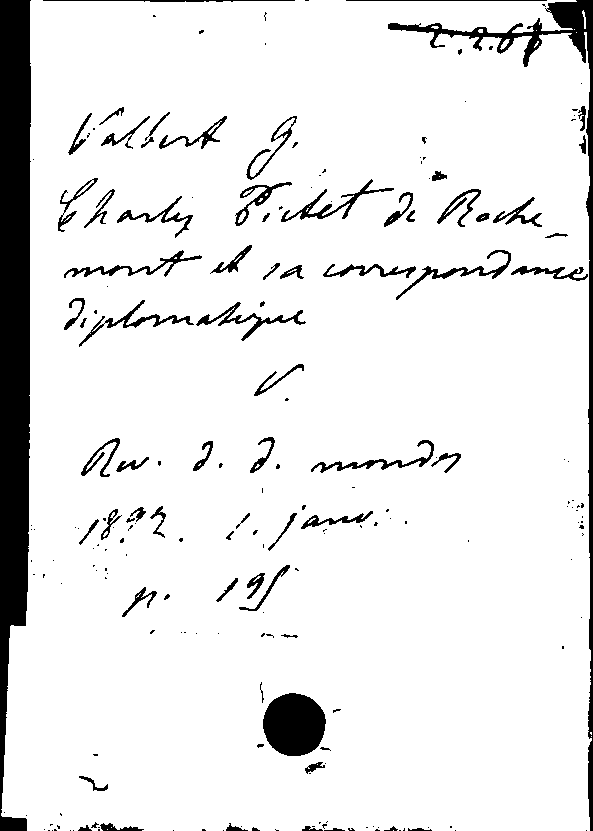 2.2.6
Valbert G.
Charles Pictet de Roche-
mont et sa correspondance
diplomatique
V.
Rev. d. d. mondes
1892. 1. janv.
p. 195